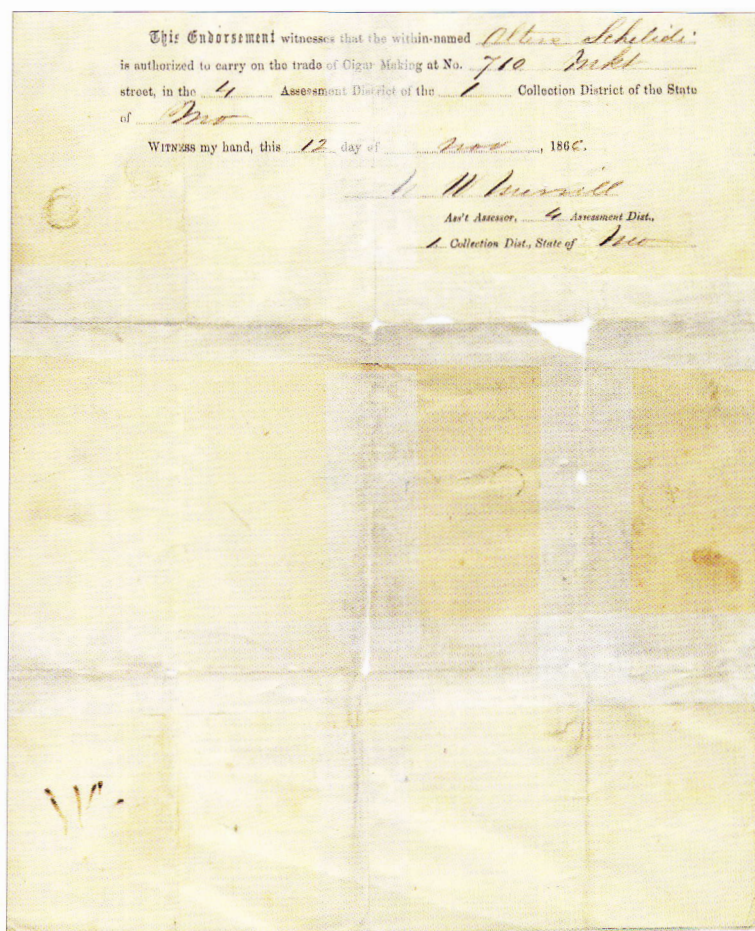 This Endorsement witnesses that the within-named
is authorized to carry on the trade of Cigar Making at No. 710 Mkt
street, in the 4 Assessment District of the 1 Collection District of the State
of Mo
WITNESS my hand, this 12 day of Nov, 186
Merrill
Ass't Assessor, 4 Assessment Dist.,
1 Collection Dist., State of Mo